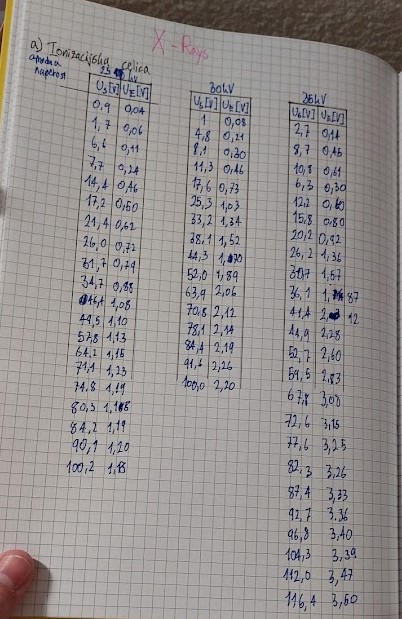 X-Rays
a) Ionizacijska celica
25 kV
U_s[V] U_I[V]
0,9 0,04
1,7 0,06
6,6 0,11
7,7 0,24
14,4 0,46
17,2 0,50
21,4 0,62
26,0 0,72
31,7 0,79
34,7 0,88
1,08
49,5 1,10
57,8 1,13
64,2 1,15
71,1 1,23
74,8 1,19
80,3
84,2 1,19
90,1 1,20
100,2 1,18
30 kV
1 0,08
4,8 0,21
8,1 0,30
11,3 0,46
17,6 0,73
25,3 1,03
33,2 1,34
38,1 1,52
44,3
52,0 1,89
63,9 2,06
70,8 2,12
78,1 2,14
84,4 2,19
91,6 2,26
100,0 2,20
35 kV
2,7 0,14
8,7 0,45
10,8 0,61
6,3 0,30
12,2 0,60
15,8 0,80
20,2 0,92
26,2 1,36
1,57
36,1
41,4
44,9 2,28
52,7 2,60
59,5 2,83
67,8 3,00
72,6 3,15
77,6 3,25
82,3 3,26
87,4 3,33
92,7 3.36
96,8 3,40
104,3 3,39
112,0 3,47
116,4 3,50